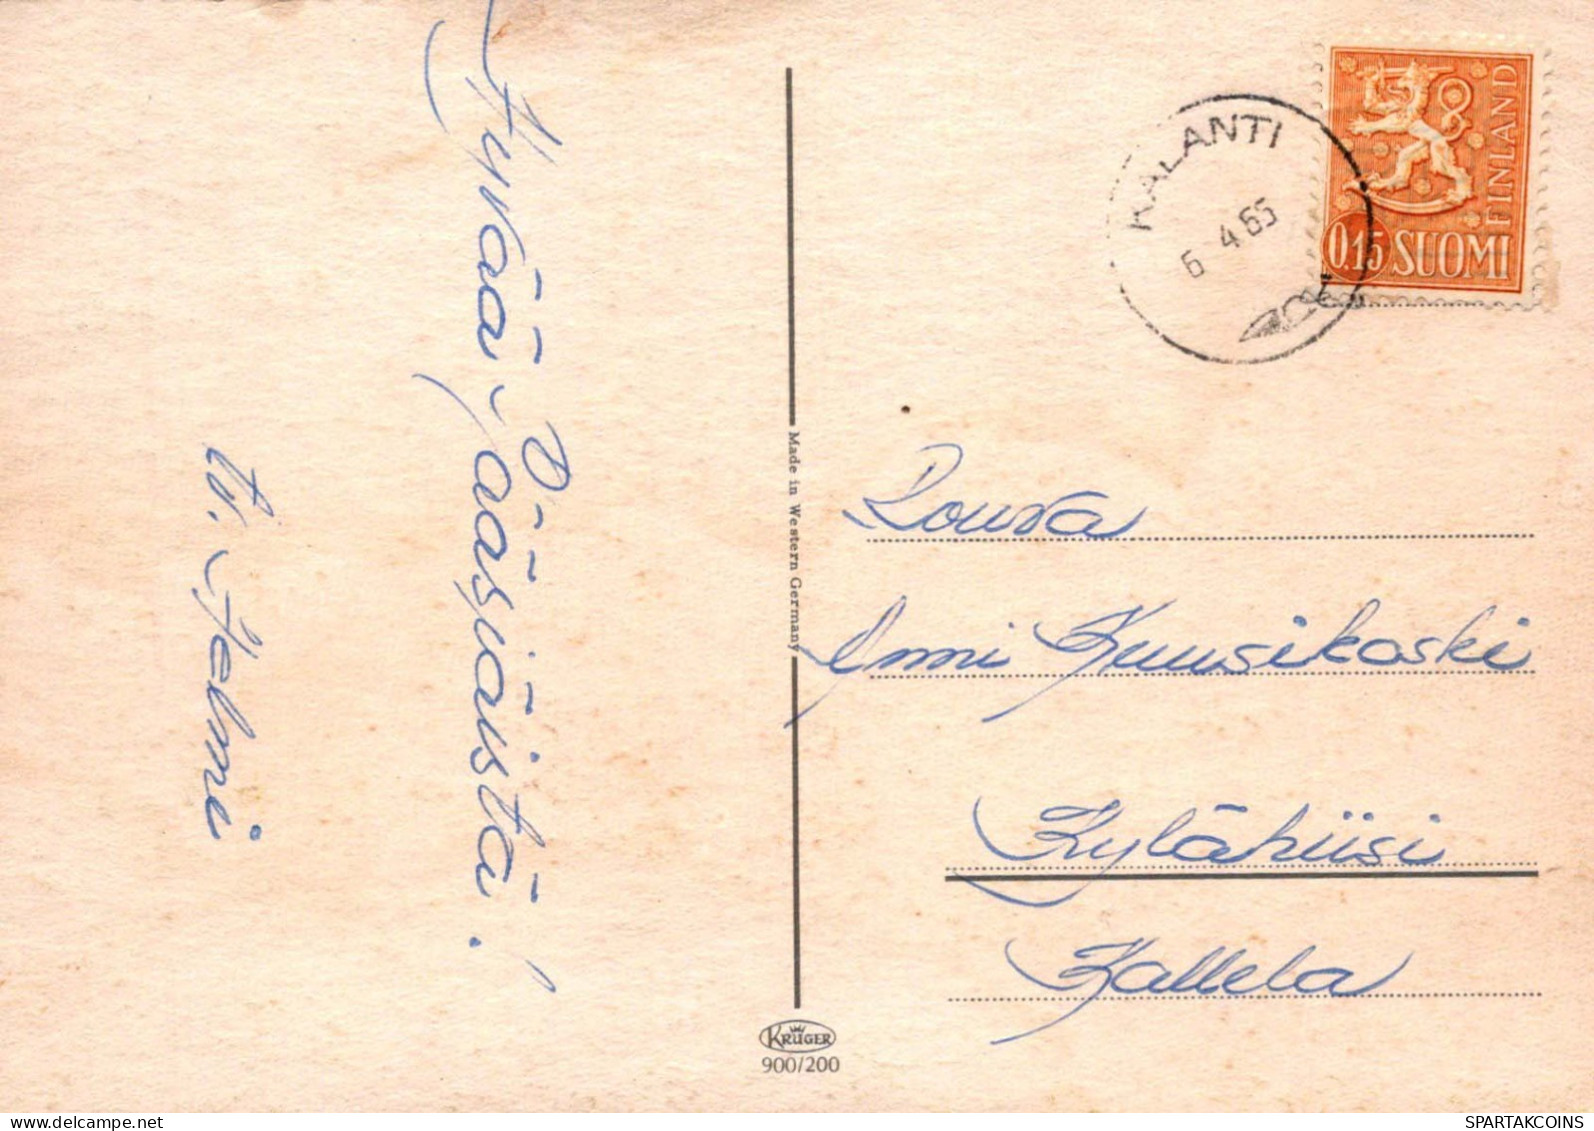 Hyvää pääsiäistä!
tv. Helmi
KALANTI
6 4.65
0.15 SUOMI
FINLAND
Rouva
Kuusikoski
Kylähiisi
Kallela
Made in Western Germany
KRÜGER
900/200
SPARTAKCOINS